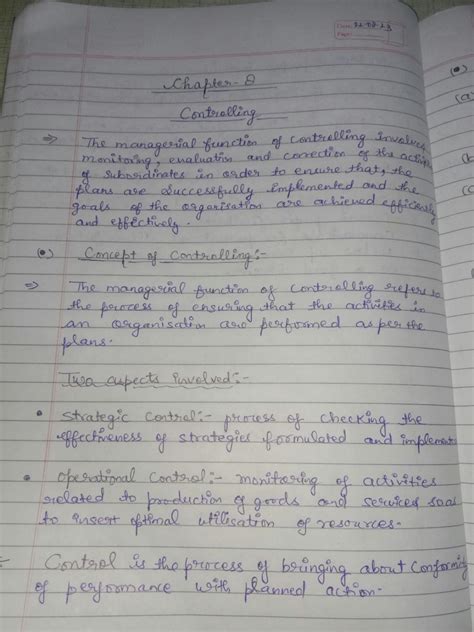 Date: 22.08.23
Page:
Chapter-8
Controlling
⇒ The managerial function of Controlling involves
monitoring, evaluation and correction of the activi
of subordinates in order to ensure that, the
plans are successfully Implemented and the
goals of the organisation are achieved efficiently
and effectively.
(•) Concept of Controlling:-
⇒ The managerial function of controlling refers to
the process of ensuring that the activities in
an organisation are performed as per the
plans.
Two aspects involved:-
• Strategic Control:- process of checking the
effectiveness of strategies formulated and implement
• Operational Control:- monitoring of activities
related to production of goods and services so as
to insert optimal utilisation of resources.
Control is the process of bringing about Conformity
of performance with planned action.
(•)
(a)
(b
(c